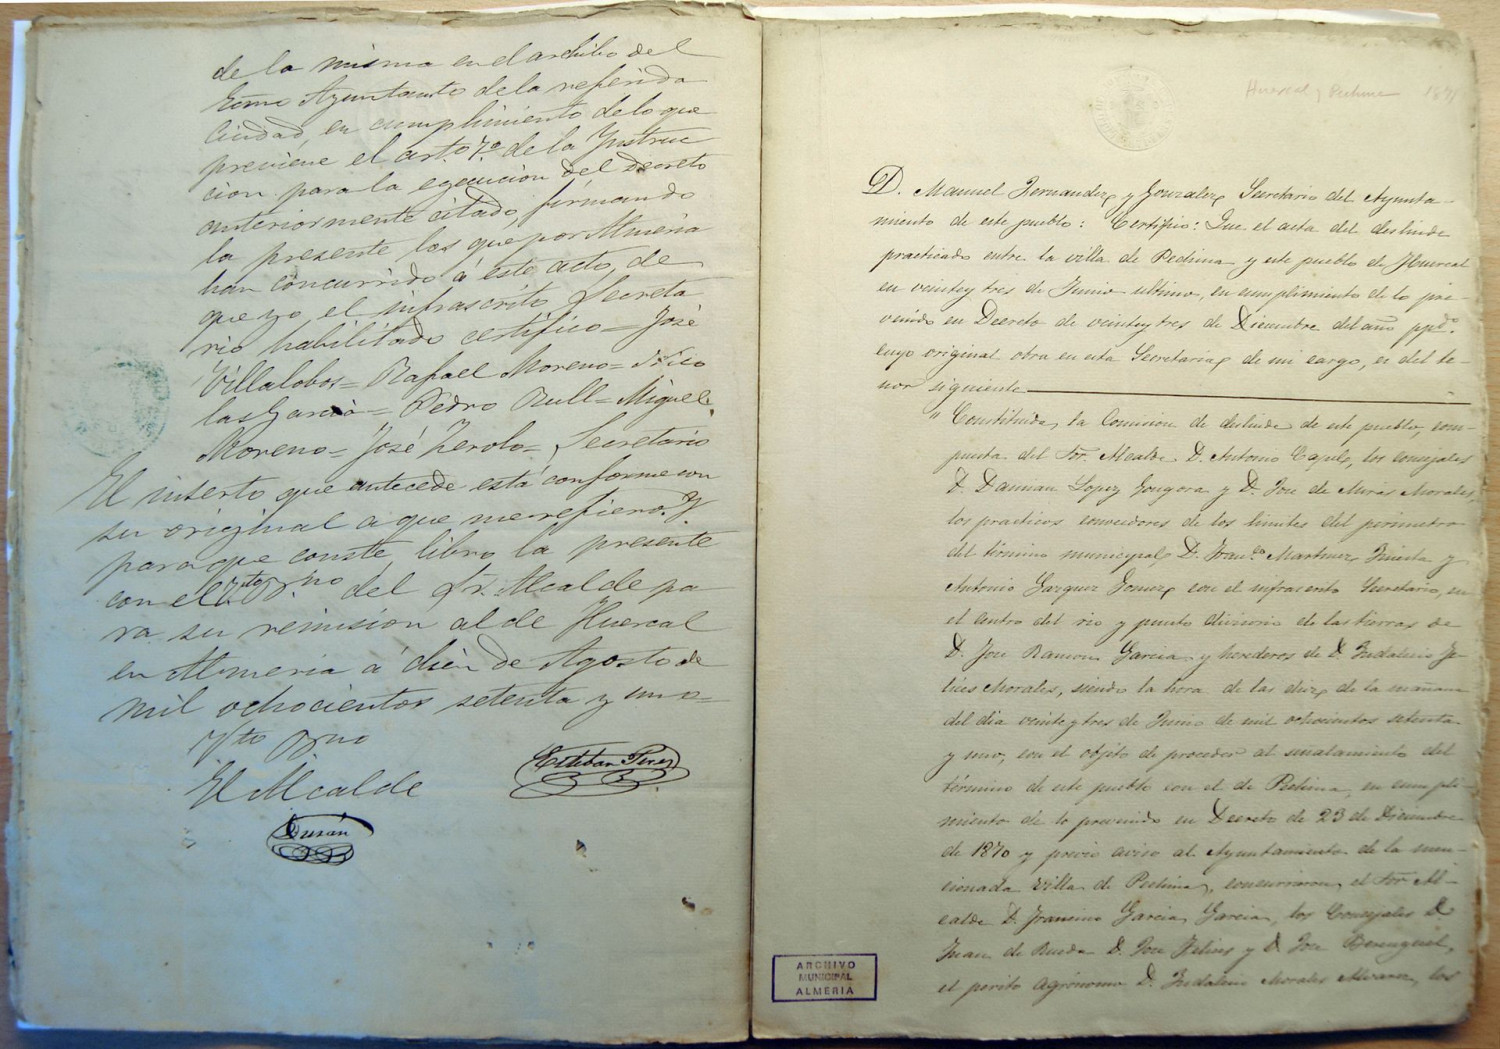 de la misma en el archibo del
Exmo Ayuntamto de la referida
Ciudad, en cumplimiento de lo que
previene el arto. 7º. de la Ynstruc
cion para la egecucion del decreto
anteriormente citado, firmando
la presente los que por Almeria
han concurrido á este acto, de
que yo el infrascrito Secreta
rio habilitado certifico= José
Villalobos= Rafael Moreno= Nico
las Garcia= Pedro Rull= Miguel
Moreno= José Zerolo= Secretario
El inserto que antecede está conforme con
su original a que me refiero. Y
para que conste, libro la presente
con el Vto Bno del Sr. Alcalde pa
ra su remision al de Huercal
en Almeria á dien de Agosto de
mil ochocientos setenta y uno=
Vto Bno
El Alcalde
Esteban Perez
Durán
Huercal y Pechina 1871
D. Manuel Fernandez y Gonzalez Secretario del Ayunta-
miento de este pueblo: Certifico: Que el acta del deslinde
practicado entre la villa de Pechina y este pueblo de Huercal
en veinte y tres de Junio ultimo, en cumplimiento de lo pre-
venido en Decreto de veinte y tres de Diciembre del año ppdo.
cuyo original obra en esta Secretaria de mi cargo, es del te-
nor siguiente
" Constituida la Comision de deslinde de este pueblo, com-
puesta del Sor. Alcalde D. Antonio los concejales
D. Damian Lopez Gongora y D. Jose de Miras Morales,
los practicos conocedores de los limites del perimetro
del término municipal D. Franco. Martinez Iniesta y
Antonio Gazquez Gomez con el infrascrito Secretario, en
el centro del rio y punto divisorio de las tierras de
D. Jose Ramon Garcia y herederos de D. Indalecio Fe-
lices Morales, siendo la hora de las diez de la mañana
del dia veinte y tres de Junio de mil ochocientos setenta
y uno, con el objeto de proceder al señalamiento del
término de este pueblo con el de Pechina, en cumpli-
miento de lo prevenido en Decreto de 23 de Diciembre
de 1870 y previo aviso al Ayuntamiento de la men-
cionada villa de Pechina, concurrieron, el Sor Al-
calde D. Francisco Garcia Garcia, los Concejales D.
Juan de Rueda D. Jose Felices y D. Jose Berenguel,
el perito agrónomo D. Indalecio Morales Alvarez, los
ARCHIVO
MUNICIPAL
ALMERIA